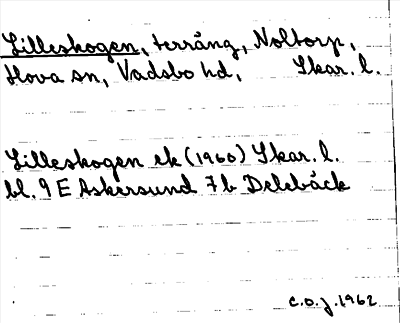 Lilleskogen, terräng, Noltorp,
Hova sn, Vadsbo hd, Skar. l.
Lilleskogen ek (1960) Skar. l.
bl. 9 E Askersund 7b Delebäck
C.O.J. 1962